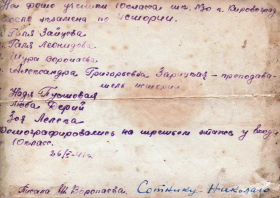 На фото ученики 10 класса шк. №30 г. Кировоград
после экзамена по истории.
Галя Зайцева
Галя Леонидова
Шура Воропаева
Александра Григорьевна Зарицкая - преподава-
тель истории
Надя
Люба Берий
Зоя Лелека
Фотографировались на третьем этаже у входа
10 класс.
Писала Ш. Воропаева. Сотнику Николаю